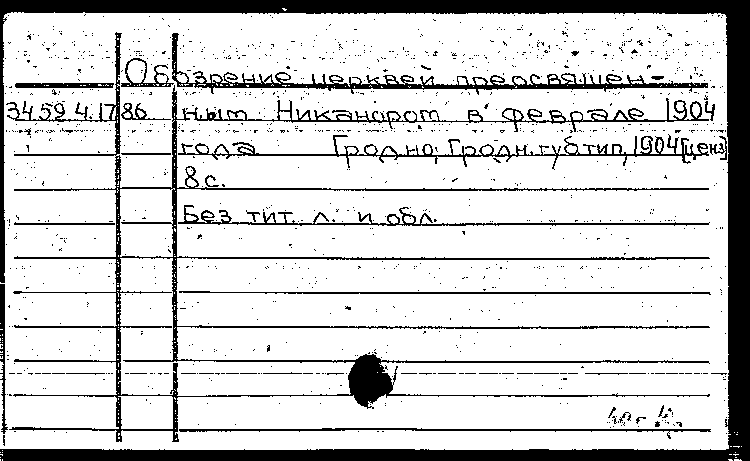 Обозрение церквей преосвящен-
34.59.4.17 86 ным Никанором в феврале 1904
года Гродно; Гродн. губ тип, 1904 [ценз]
8 с.
Без тит. л. и обл.